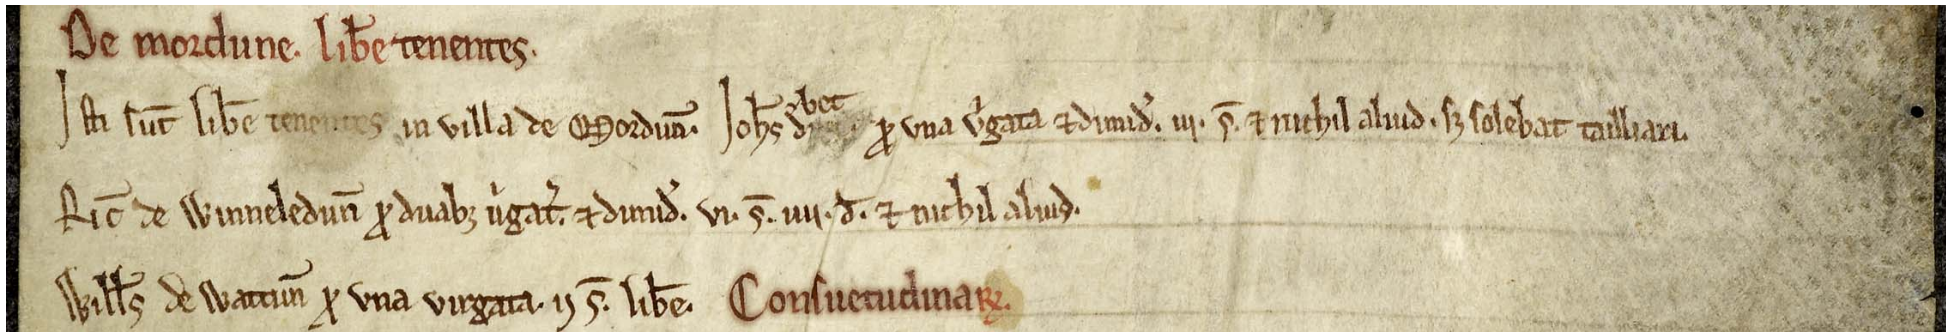 De mordune. lib̄e tenentes.
Isti sūt lib̄e tenentes in villa de Mordun̄. Joh̄s debet ꝓ vna v̉gata ⁊ dimid̉. iii. s̄. ⁊ nichil aliud. sꝫ solebat tailliari.
Ric̄ de Winneledun̄ ꝓ duabꝫ v̉gat̉. ⁊ dimid̉. vi. s̄. iiii. d̄. ⁊ nichil aliud.
Will̄s de Wattun̄ ꝓ vna virgata. ij s̄. lib̄e. Consuetudinarꝝ.